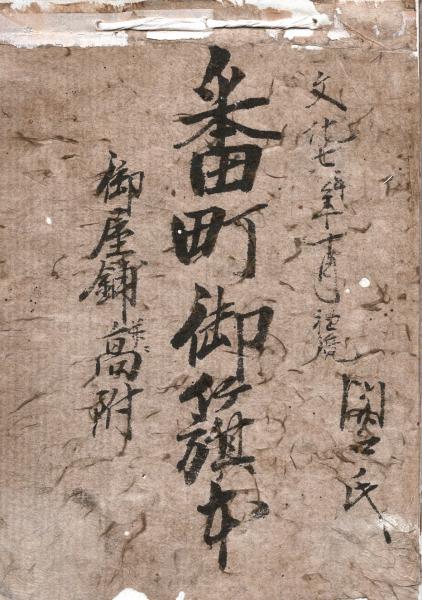 文化七年十月
関氏
番町御旗本
御屋鋪高附